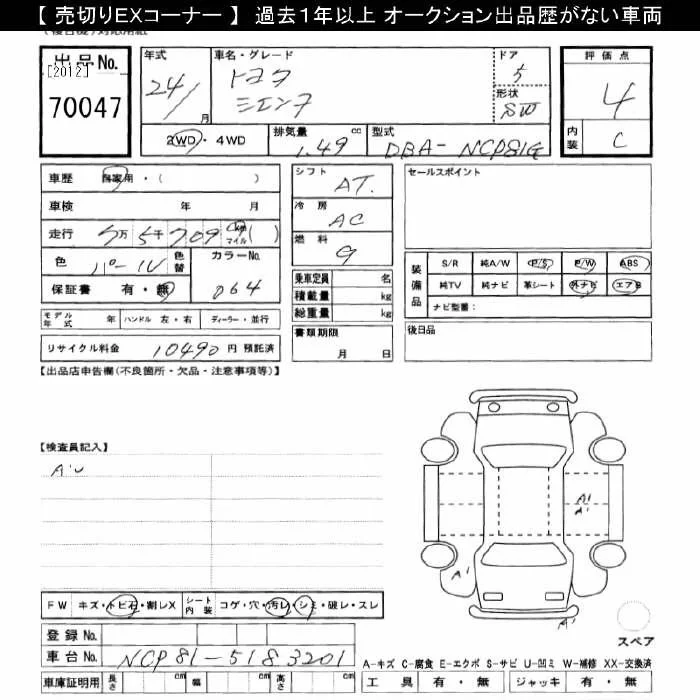 【 売切りEXコーナー 】 過去1年以上 オークション出品歴がない車両
出品No.
[2012]
70047
年式
24/
月
車名・グレード
トヨタ
シエンタ
ドア
5
形状
SW
評価点
4
内装
C
2WD・4WD
排気量
1.49 cc
型式
DBA-NCP81G
車歴 自家用・( )
車検 年 月
走行 5万5千709 km マイル ( )
色 パール 色替
カラーNo.
064
保証書 有・無
シフト
AT.
冷房
AC
燃料
G
セールスポイント
乗車定員 名
積載量 kg
総重量 kg
書類期限
月 日
装備品
S/R 純A/W P/S P/W ABS
純TV 純ナビ 革シート 外ナビ エアB
ナビ型番:
後日品
モデル年式 年 ハンドル 左・右 ディーラー・並行
リサイクル料金 10490 円 預託済
【出品店申告欄(不良箇所・欠品・注意事項等)】
【検査員記入】
A'U
A'
A'
A'
A'
FW キズ・トビ石・割レX
シート内装 コゲ・穴・汚レ・シミ・破レ・スレ
登録 No.
車台 No. NCP81-5183201
車庫証明用 長さ cm 幅 cm 高さ cm
スペア
A-キズ C-腐食 E-エクボ S-サビ U-凹ミ W-補修 XX-交換済
工具 有・無 ジャッキ 有・無